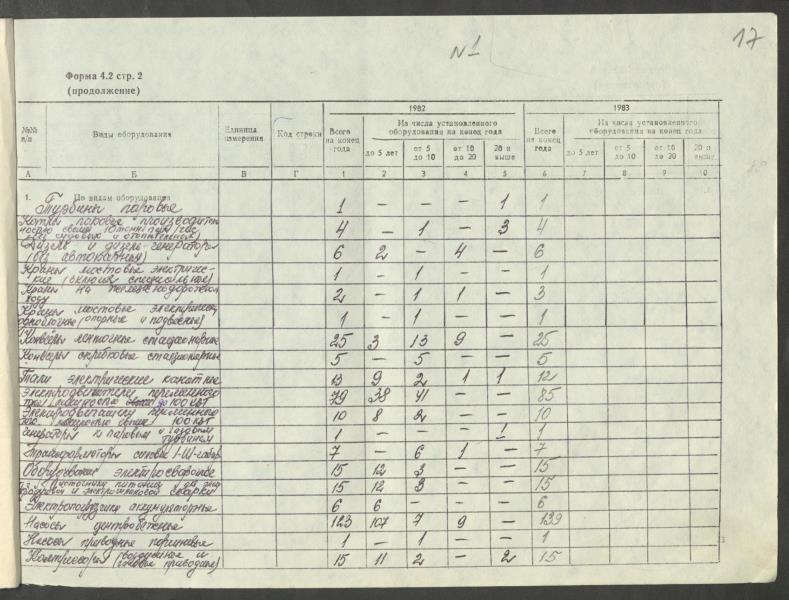 17
N 1
Форма 4.2 стр. 2
(продолжение)
№№ п/п | Виды оборудования | Единица измерения | Код строки | 1982 | 1983
Всего на конец года | Из числа установленного оборудования на конец года | Всего на конец года | Из числа установленного оборудования на конец года
до 5 лет | от 5 до 10 | от 10 до 20 | 20 и выше | до 5 лет | от 5 до 10 | от 10 до 20 | 20 и выше
А | Б | В | Г | 1 | 2 | 3 | 4 | 5 | 6 | 7 | 8 | 9 | 10
1. По видам оборудования
Турбины паровые 1 – – – 1 1
Котлы паровые производитель
ностью свыше 10 тонн пара/час
(без судовых и отопительных) 4 – 1 – 3 4
Дизели и дизель-генераторы
(без автономных) 6 2 – 4 – 6
Краны мостовые электричес-
кие (включая специальные) 1 – 1 – – 1
Краны на железнодорожном
ходу 2 – 1 1 – 3
Краны мостовые электрические
однобалочные (опорные и подвесные) 1 – 1 – – 1
Конвейеры ленточные стационарные 25 3 13 9 – 25
Конвейеры скребковые стационарные 5 – 5 – – 5
Тали электрические канатные 13 9 2 1 1 12
Электродвигатели переменного
тока мощностью до 100 кВт 79 38 41 – – 85
Электродвигатели переменного
тока мощностью свыше 100 кВт 10 8 2 – – 10
Генераторы к паровым и газовым
турбинам 1 – – – 1 1
Трансформаторы силовые I-III габар. 7 – 6 1 – 7
Оборудование электросварочное 15 12 3 – – 15
Источники питания для
дуговой и электрошлаковой сварки 15 12 3 – – 15
Электропогрузчики аккумуляторные 6 6 – – – 6
Насосы центробежные 123 107 7 9 – 139
Насосы приводные поршневые 1 – 1 – – 1
Компрессоры (воздушные и
газовые приводные) 15 11 2 – 2 15